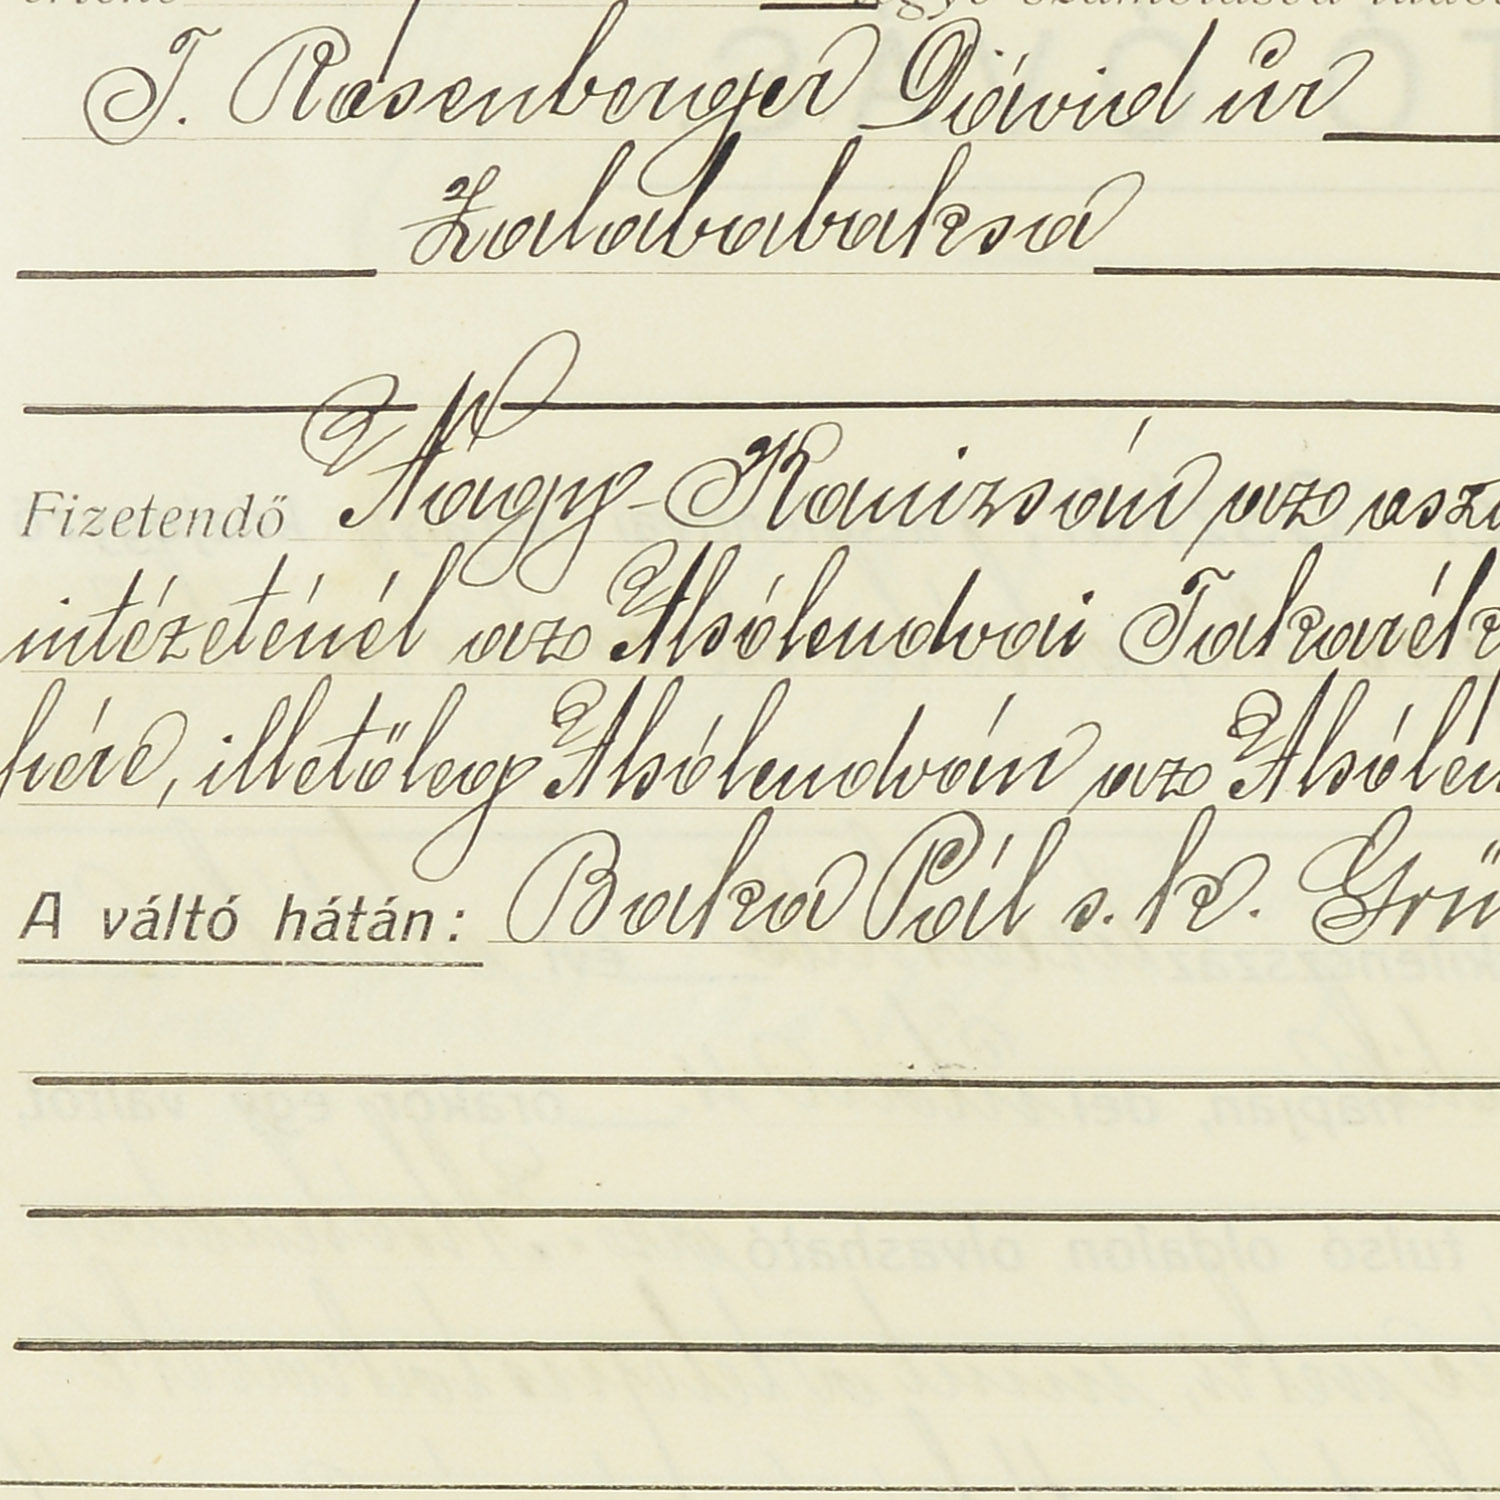 T. Rosenberger Dávid úr
Zalababaksa
Fizetendő Nagy-Kanizsán az
intézeténél az Alsólendvai
illetőleg Alsólendván az
A váltó hátán: Baka Pál s. k.